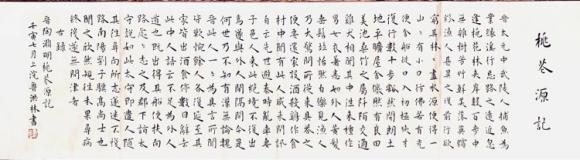 桃花源記
晉太元中武陵人捕魚為
業緣溪行忘路之遠近忽
逢桃花林夾岸數百步中
無雜樹芳草鮮美落英繽
紛漁人甚異之復前行欲
窮其林林盡水源便得一
山山有小口彷彿若有光
便舍船從口入初極狹才通人
復行數十步豁然開朗土
地平曠屋舍儼然有良田
美池桑竹之屬阡陌交通
雞犬相聞其中往來種作
男女衣著悉如外人黃髮
垂髫並怡然自樂見漁人
乃大驚問所從來具答之
便要還家設酒殺雞作食
村中聞有此人咸來問訊
自云先世避秦時亂率妻
子邑人來此絕境不復出
焉遂與外人間隔問今是
何世乃不知有漢無論魏
晉此人一一為具言所聞
皆歎惋餘人各復延至其
家皆出酒食停數日辭去
此中人語云不足為外人
道也既出得其船便扶向
路處處誌之及郡下詣太
守說如此太守即遣人隨
其往尋向所誌遂迷不復得
路南陽劉子驥高尚士也
聞之欣然規往未果尋病
終後遂無問津者
右錄
晉陶淵明桃花源記
壬寅七月上浣魯洪林書